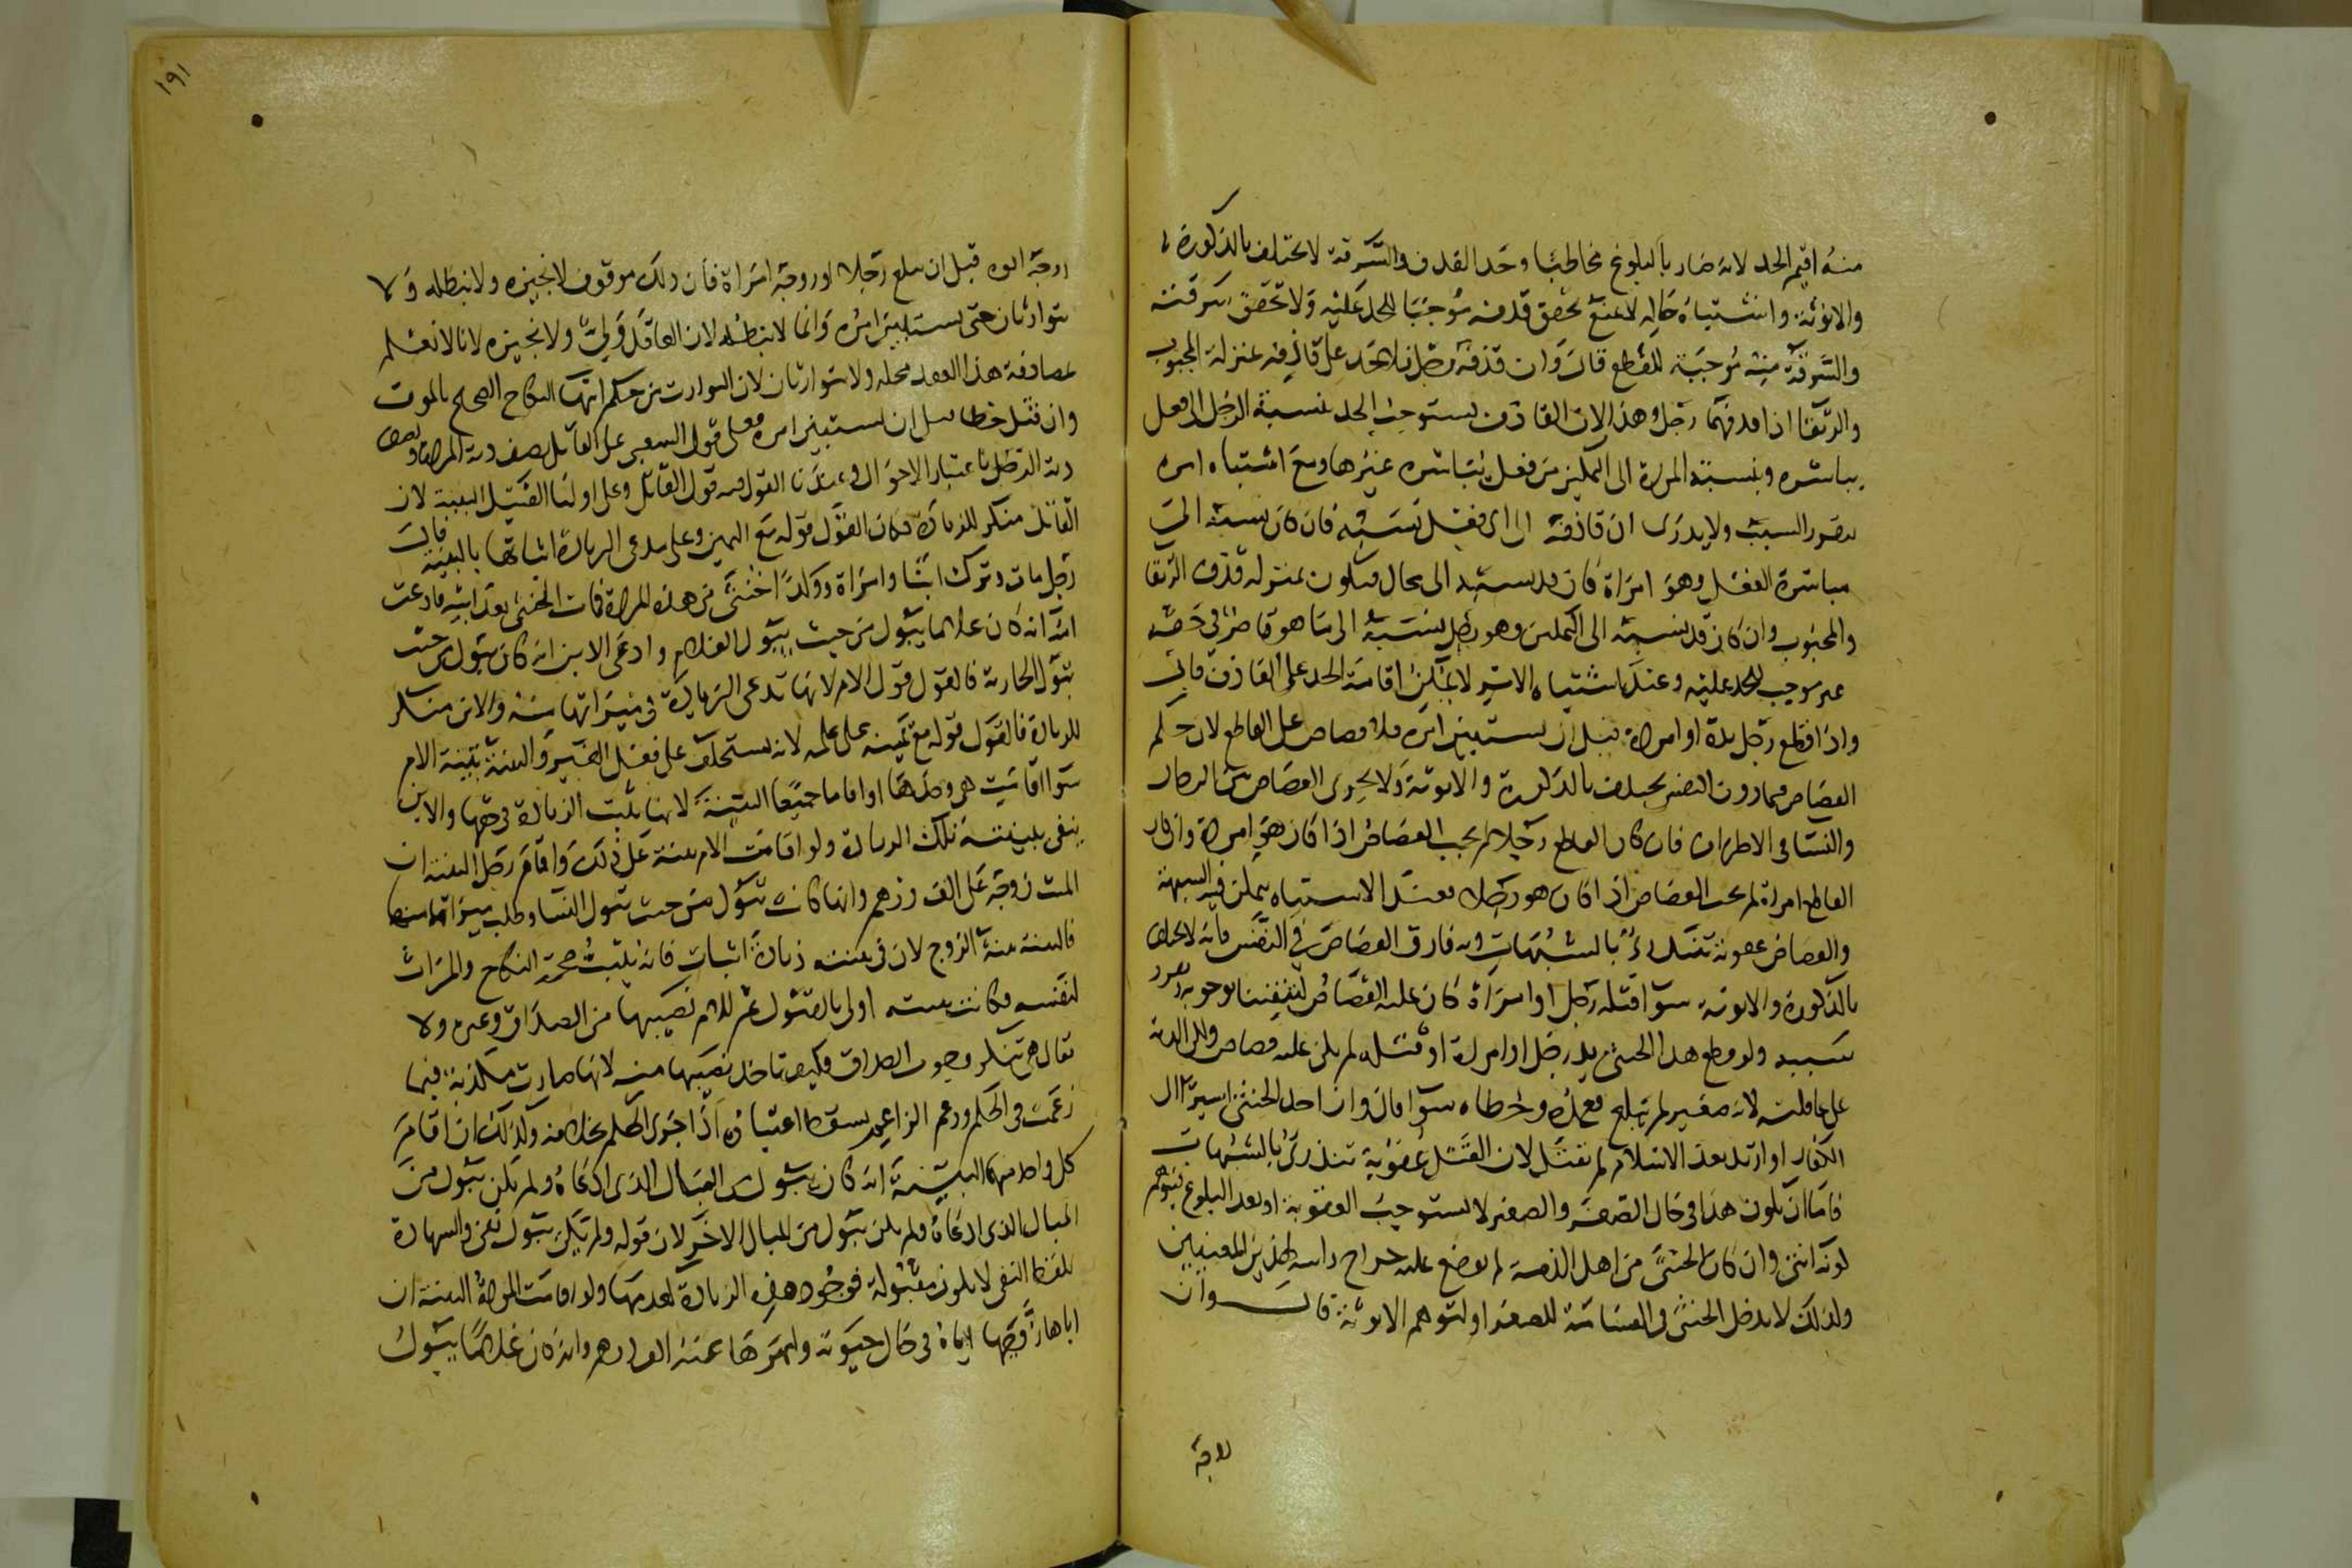 منه اقيم الحد لانه صار بالبلوغ مخاطبا وحد القذف والسرقة لا يختلف بالذكورة
والانوثة واشتباه حاله لا يمنع تحقق قذفه موجبا للحد عليه ولا تحقق سرقته
والسرقة منه موجبة للقطع قال وان قذفه رجل فلا حد على قاذفه بمنزلة المجبوب
والرتقا اذا قذفهما رجل وهذا لان القاذف يستوجب الحد بنسبة الرجل الى فعل
يباشره وبنسبة المراة الى التمكين من فعل يباشره غيرها ومع اشتباه امره
السبب ولا يدرى ان قاذفه الى اى فعل نسبه فان كان نسبه الى
مباشرة الفعل وهو امراة كان قد نسبه الى محال فيكون بمنزلة قذف الرتقا
والمجبوب وان كان قد نسبه الى التمكين وهو رجل بنسبته الى ما هو قاصر في حقه
غير موجب للحد عليه وعند اشتباه الامر لا يمكن اقامة الحد على القاذف قال
واذا قطع رجل يده او امراة قبل ان يستبين امره فلا قصاص على القاطع لان حكم
القصاص فيما دون النفس يختلف بالذكورة والانوثة ولا يجرى القصاص بين الرجال
والنسا في الاطراف فان كان القاطع رجلا لم يجب القصاص اذا كان هو امراة وان كان
القاطع امراة لم يجب القصاص اذا كان هو رجلا فعند الاشتباه يتمكن فيه الشبهة
والقصاص عقوبة تندرئ بالشبهات وبه فارق القصاص في النفس فانه لا يختلف
بالذكورة والانوثة سوا قتله رجل او امراة كان عليه القصاص لتيقننا بوجوبه
بسببه ولو قطع هذا الخنثى يد رجل او امراة او قتله لم يكن عليه قصاص ولكن الدية
على عاقلته لانه صغير لم يبلغ فعمده وخطاه سوا قال وان احد الخنثى اسيرا الى
الكفار او ارتد بعد الاسلام لم يقتل لان القتل عقوبة تندرئ بالشبهات
فاما ان يكون هذا في حال الصغر والصغير لا يستوجب العقوبة او بعد البلوغ فيتوهم
كونه انثى وان كان الخنثى من اهل الذمة لم يوضع عليه خراج راسه لهذين المعنيين
ولذلك لا يدخل الخنثى في القسامة للصغر او لتوهم الانوثة قال وان
١٩١
زوجه ابوه قبل ان يبلغ رجلا او زوجه امراة فان ذلك موقوف لا نجيزه ولا نبطله ولا
يتوارثان حتى يستبين امره وانما لا نبطله لان العاقد ولي ولا نجيزه لانا لا نعلم
بمصادفة هذا العقد محله ولا يتوارثان لان التوارث من حكم انتها النكاح الصحيح بالموت
وان قتل خطا قبل ان يستبين امره فعلى قول الشعبي على القاتل نصف دية المراة ونصف
دية الرجل باعتبار الاحوال وعندنا القول فيه قول القاتل وعلى اوليا القتيل البينة لان
القاتل منكر للزيادة فكان القول قوله مع اليمين وعلى مدعى الزيادة اثباتها بالبينة قال
رجل مات وترك ابنا وامراة وولدا خنثى من هذه المراة فمات الخنثى بعد ابيه فادعت
امه انه كان غلاما يبول من حيث يبول الغلام وادعى الابن انه كان يبول من حيث
تبول الجارية فالقول قول الام لانها تدعى الزيادة في ميراثها منه والابن منكر
للزيادة فالقول قوله مع يمينه على علمه لانه يستحلف على فعل الغير والبينة بينة الام
سوا اقامت هي وحدها او اقاما جميعا البينة لانها تثبت الزيادة في حقها والابن
ينفى ببينته تلك الزيادة ولو اقامت الام بينة على ذلك واقام رجل البينة ان
الميت زوجه على الف درهم وانها كانت تبول من حيث تبول النسا وطلب ميراثه منها
فالبينة بينة الزوج لان في بينته زيادة اثبات فانه يثبت صحة النكاح والميراث
لنفسه فكانت بينته اولى بالقبول ثم للام نصيبها من الصداق وغيره ولا
يقال هي تنكر وجوب الصداق فكيف تاخذ نصيبها منه لانها صارت مكذبة فيما
زعمت في الحكم وزعم الزاعم يسقط اعتباره اذا جرى الحكم بخلافه وكذلك ان اقام
كل واحد منهما البينة انه كان يبول من المبال الذى ادعاه ولم يكن يبول من
المبال الذى ادعاه ولم يكن يبول من المبال الاخر لان قوله ولم يكن يبول نفى والشهادة
بلفظ النفى لا يكون مقبولة فوجود هذه الزيادة كعدمها ولو اقامت المراة البينة ان
اباها زوجها اياه في حال حيوته وامهرها عنه الف درهم وانه كان غلاما يبول